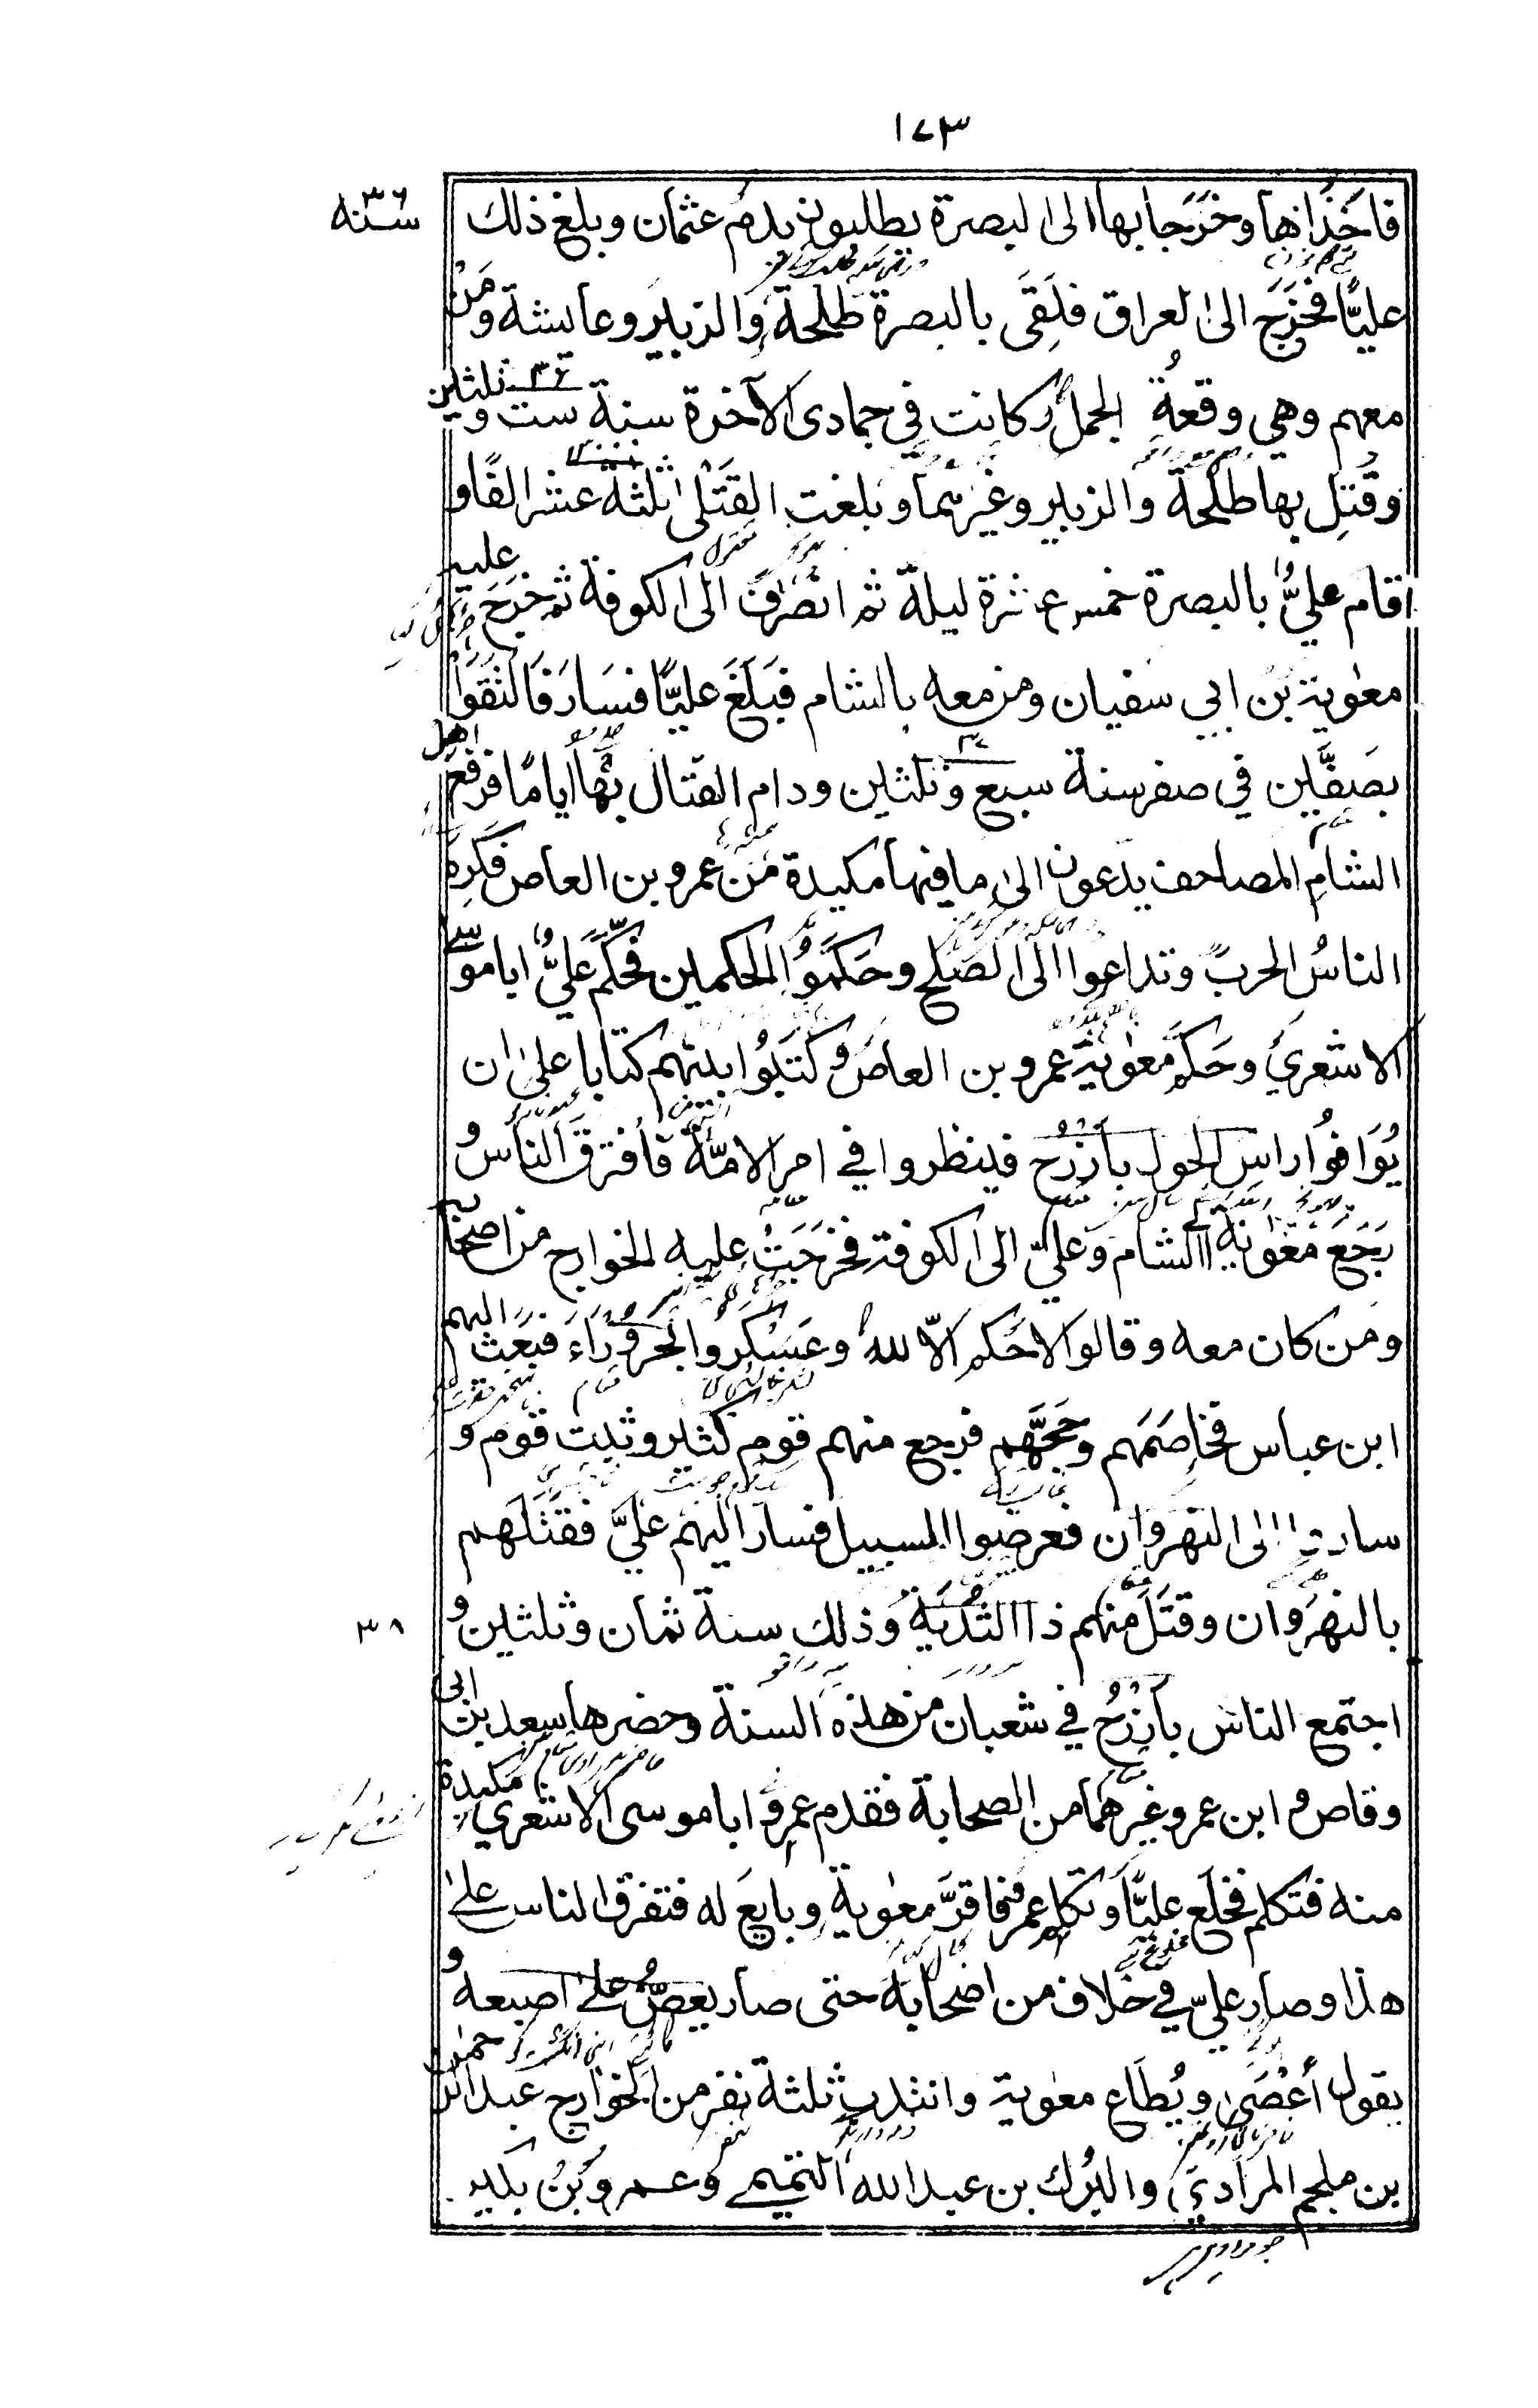 ١٧٣
سنة ٣٦
فاخذاها وخرجا بها الى البصرة يطلبون بدم عثمان وبلغ ذلك
عليًّا فخرج الى العراق فلقى بالبصرة طلحة والزبير وعايشة ومن
معهم وهي وقعة الجمل وكانت في جمادى الآخرة سنة ست وثلثين ٣٦
وقتل بها طلحة والزبير وغيرهما وبلغت القتلى ثلثة عشر الفًا و
اقام عليٌّ بالبصرة خمس عشرة ليلة ثم انصرف الى الكوفة ثم خرج عليه
معٰوية بن ابي سفيان ومن معه بالشام فبلغ عليًّا فسار فالتقوا
بصفّين في صفر سنة سبع وثلثين ودام القتال بها ايامًا فرفع اهل
الشام المصاحف يدعون الى ما فيها مكيدة من عمرو بن العاص فكره
الناسُ الحرب وتداعوا الى الصلح وحكّموا الحكمين فحكّم عليٌّ ابا موسى
الاشعري وحكّم معٰوية عمرو بن العاص وكتبوا بينهم كتابا على ان
يُوَافُوا راس الحول بأذرُح فينظروا في امر الامّة فافترق الناس و
رجع معٰوية الى الشام وعليّ الى الكوفة فخرجت عليه الخوارج من اصحابه
ومن كان معه وقالوا لا حكم الّا لله وعسكروا بحروراء فبعث اليهم
ابن عباس فخاصمهم وحجّهم فرجع منهم قوم كثير وثبت قوم و
ساروا الى النهروان فعرضوا السبيل فسار اليهم عليٌّ فقتلهم
بالنهروان وقتل منهم ذا الثديّة وذلك سنة ثمان وثلثين و
٣٨
اجتمع الناس بأذرح في شعبان من هذه السنة وحضرها سعد بن ابي
وقاص و ابن عمر وغيرهما من الصحابة فقدم عمرو ابا موسى الاشعري مكيدة
منه فتكلم فخلع عليًّا وتكلم عمرو فاقرّ معٰوية وبايع له فتفرق الناس على
هذا وصار عليّ في خلاف من اصحابه حتى صار يعضّ على اصبعه و
يقول أُعْصَى ويُطَاع معٰوية وانتدب ثلثة نفر من الخوارج عبد الرحمٰن
بن ملجم المرادي والبُرك بن عبد الله التميمي وعمرو بن بكير